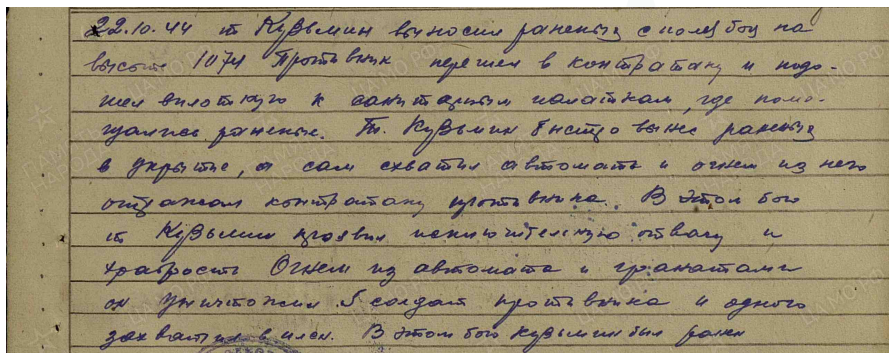 22.10.44 т Кузьмин выносил раненых с поля боя на
высоте 1071 Противник перешел в контратаку и подо-
шел вплотную к санитарным палаткам, где поме-
щались раненые. Тов. Кузьмин быстро вынес раненых
в укрытие, а сам схватил автомат и огнем из него
отражал контратаку противника. В этом бою
т Кузьмин проявил исключительную отвагу и
храбрость Огнем из автомата и гранатами
он уничтожил 5 солдат противника и одного
захватил в плен. В этом бою Кузьмин был ранен